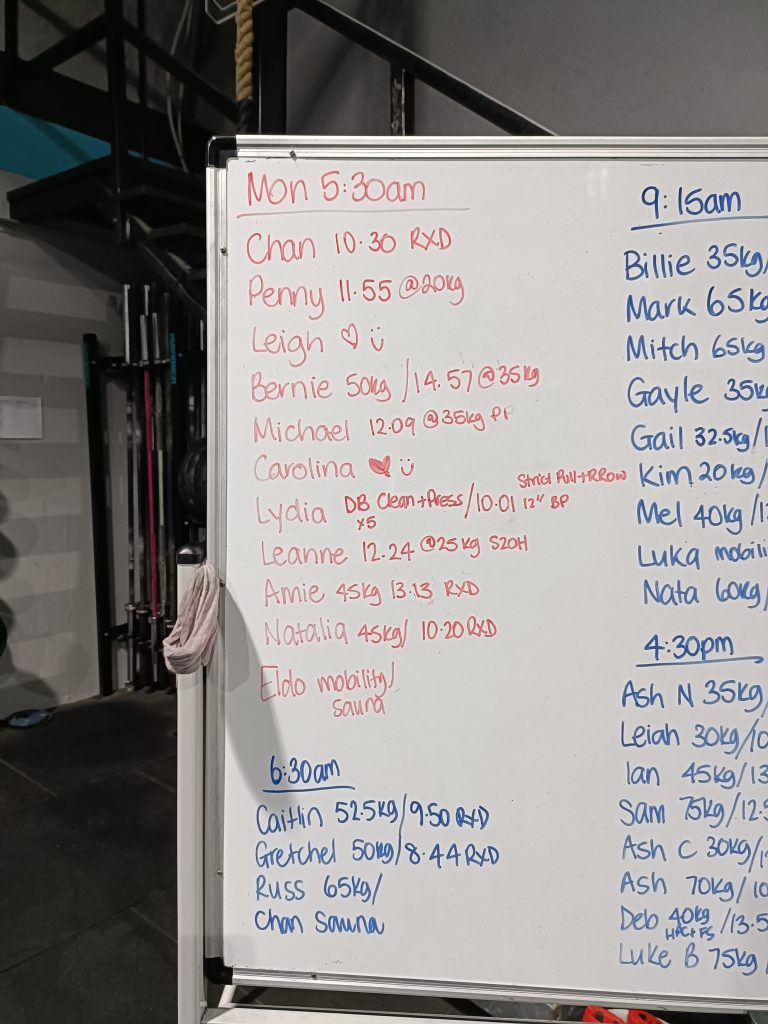 Mon 5:30am
Chan 10.30 RXD
Penny 11.55 @20kg
Leigh ♡ ü
Bernie 50kg / 14.57 @35kg
Michael 12.09 @35kg
Carolina ♥ ü
Lydia DB Clean + Press / 10.01 Strict Pull + R Row
x5 12" BP
Leanne 12.24 @25kg S2OH
Amie 45kg 13.13 RXD
Natalia 45kg / 10.20 RXD
Eldo mobility/
sauna
6:30am
Caitlin 52.5kg / 9.50 RXD
Gretchel 50kg / 8.44 RXD
Russ 65kg /
Chan Sauna
9:15am
Billie 35kg/
Mark 65kg
Mitch 65kg
Gayle 35k
Gail 32.5kg/1
Kim 20kg/
Mel 40kg/1
Luka mobili
Nata 60kg/
4:30pm
Ash N 35kg/
Leiah 30kg/10
Ian 45kg/13
Sam 75kg/12.5
Ash C 30kg/1
Ash 70kg/10
Deb 40kg /13.5
HPC + FS
Luke B 75kg /